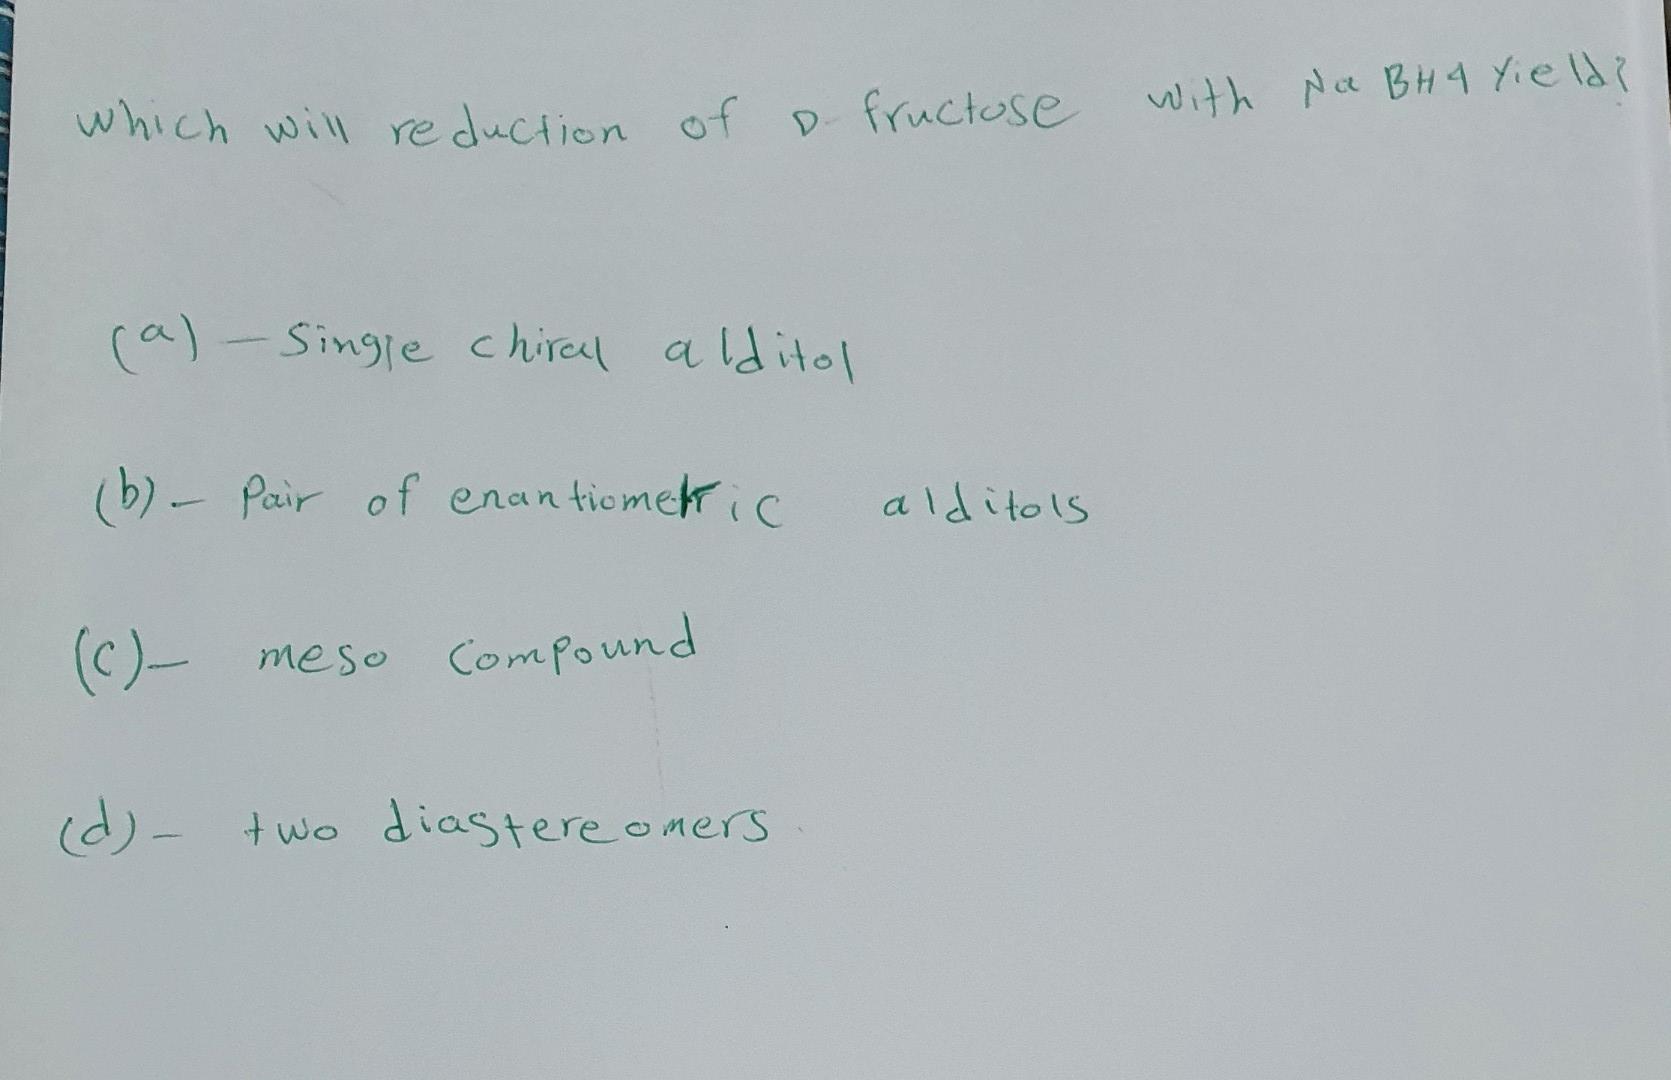 which will reduction of D- fructose with NaBH4 Yield?
(a) - Single chiral alditol
(b) - Pair of enantiometric alditols
(c) - meso compound
(d) - two diastereomers